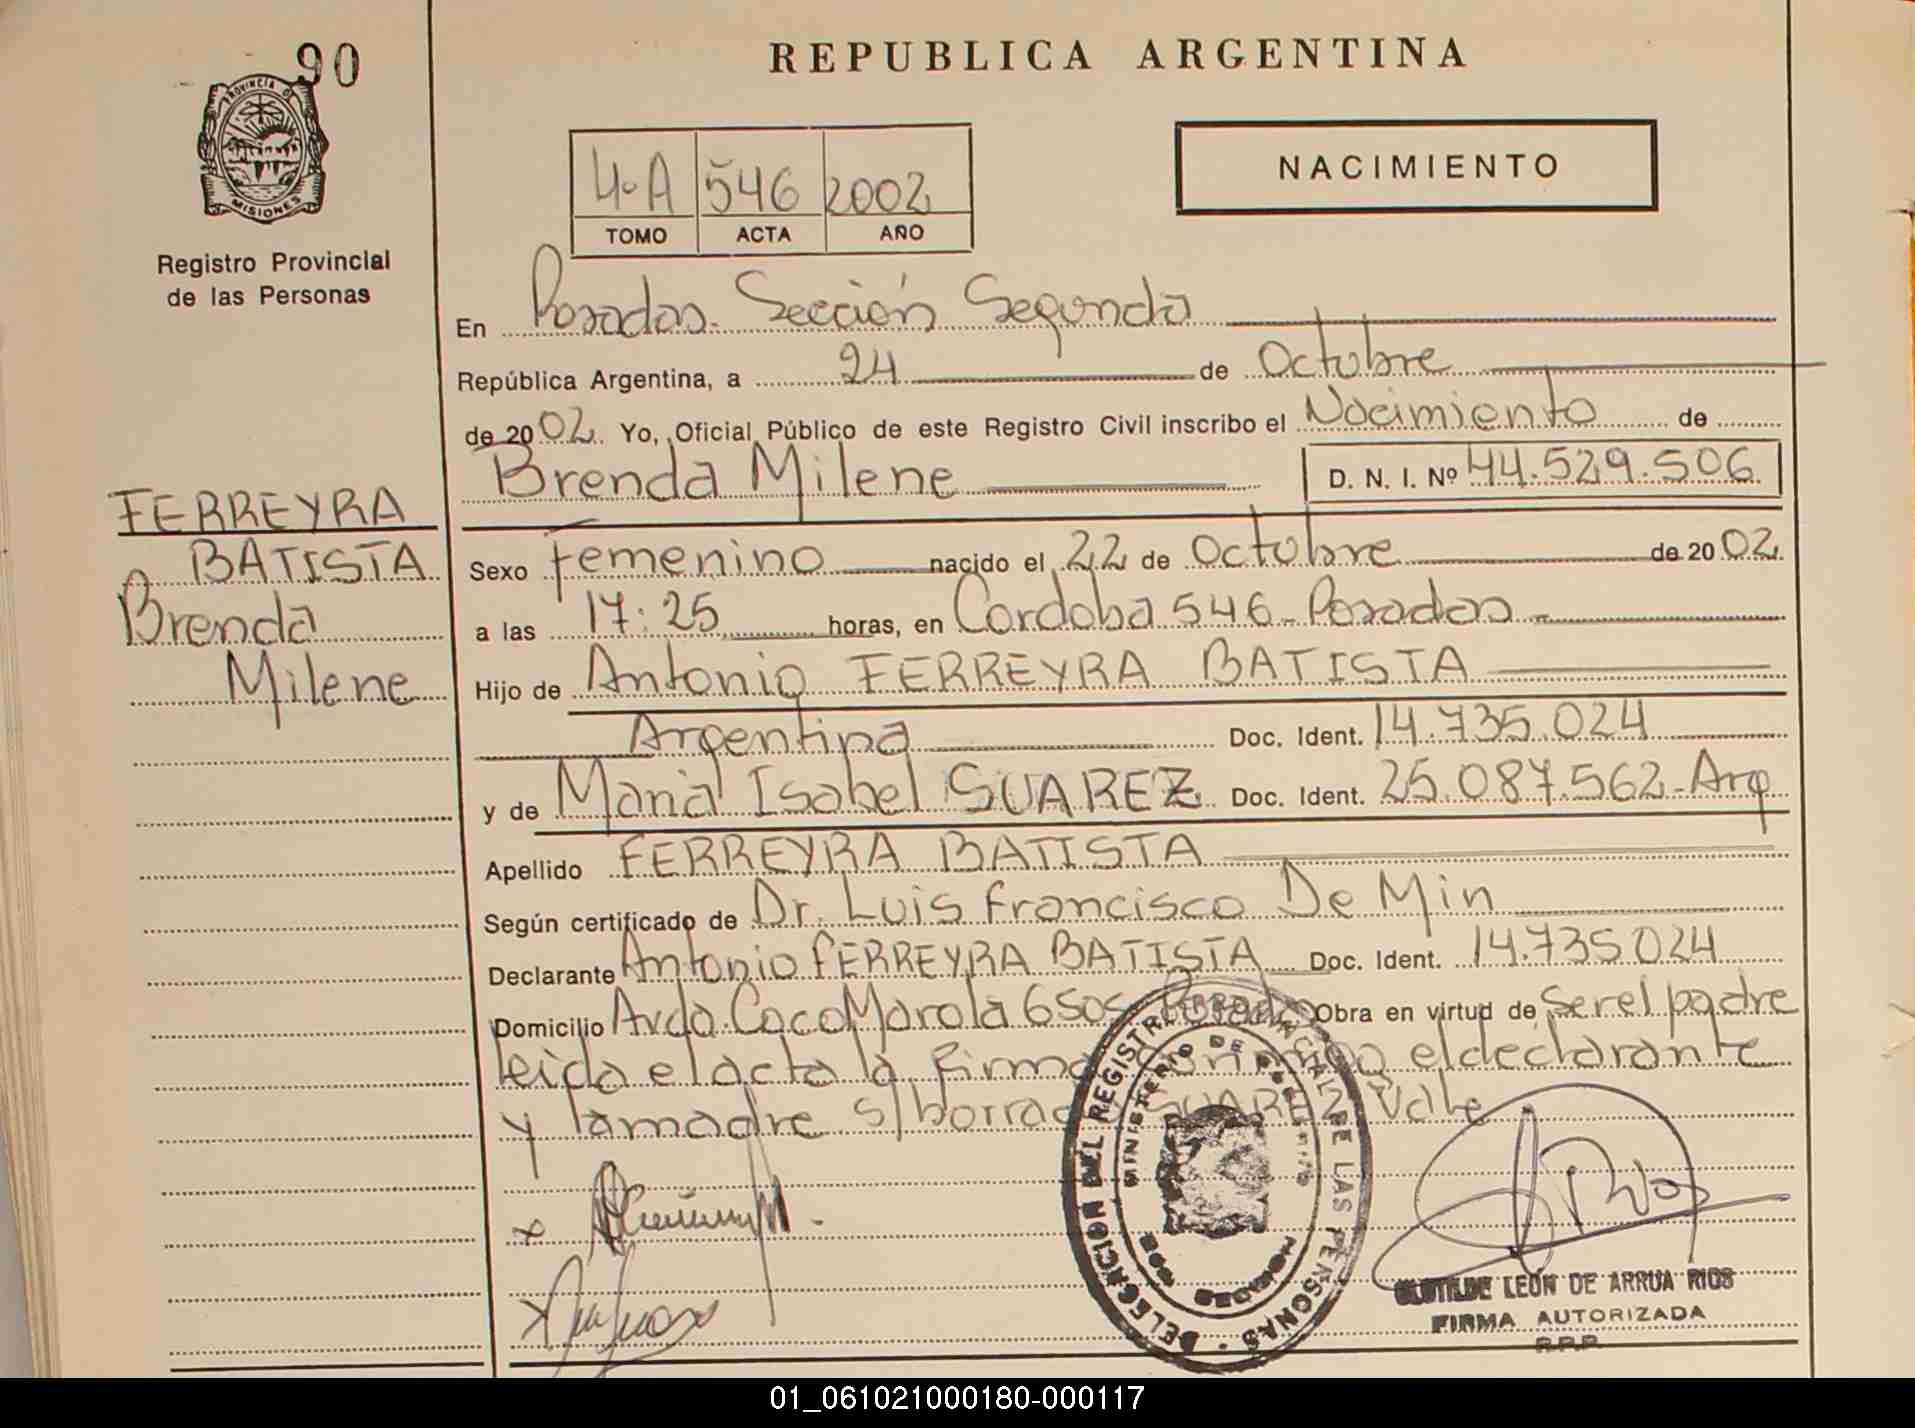 90
REPUBLICA ARGENTINA
PROVINCIA DE
MISIONES
Registro Provincial
de las Personas
4-A 546 2002
TOMO ACTA AÑO
NACIMIENTO
En Posadas-Sección Segunda
República Argentina, a 24 de Octubre
de 2002 Yo, Oficial Público de este Registro Civil inscribo el Nacimiento de
Brenda Milene D. N. I. Nº 44.529.506
FERREYRA
BATISTA
Brenda
Milene
Sexo femenino nacido el 22 de Octubre de 2002
a las 17:25 horas, en Cordoba 546-Posadas
Hijo de Antonio FERREYRA BATISTA
Argentina Doc. Ident. 14.735.024
y de Maria Isabel SUAREZ Doc. Ident. 25.087.562-Arg
Apellido FERREYRA BATISTA
Según certificado de Dr. Luis Francisco De Min
Declarante Antonio FERREYRA BATISTA Doc. Ident. 14.735024
Domicilio Avda. CocoMarola 6505 Posadas Obra en virtud de ser el padre
leida el acta la firma conmigo el declarante
y la madre s/borrado SUAREZ Vale
DELEGACION DEL REGISTRO PROVINCIAL DE LAS PERSONAS
MINISTERIO DE
CLOTILDE LEÓN DE ARRUA RIOS
FIRMA AUTORIZADA
R.P.P.
01_061021000180-000117